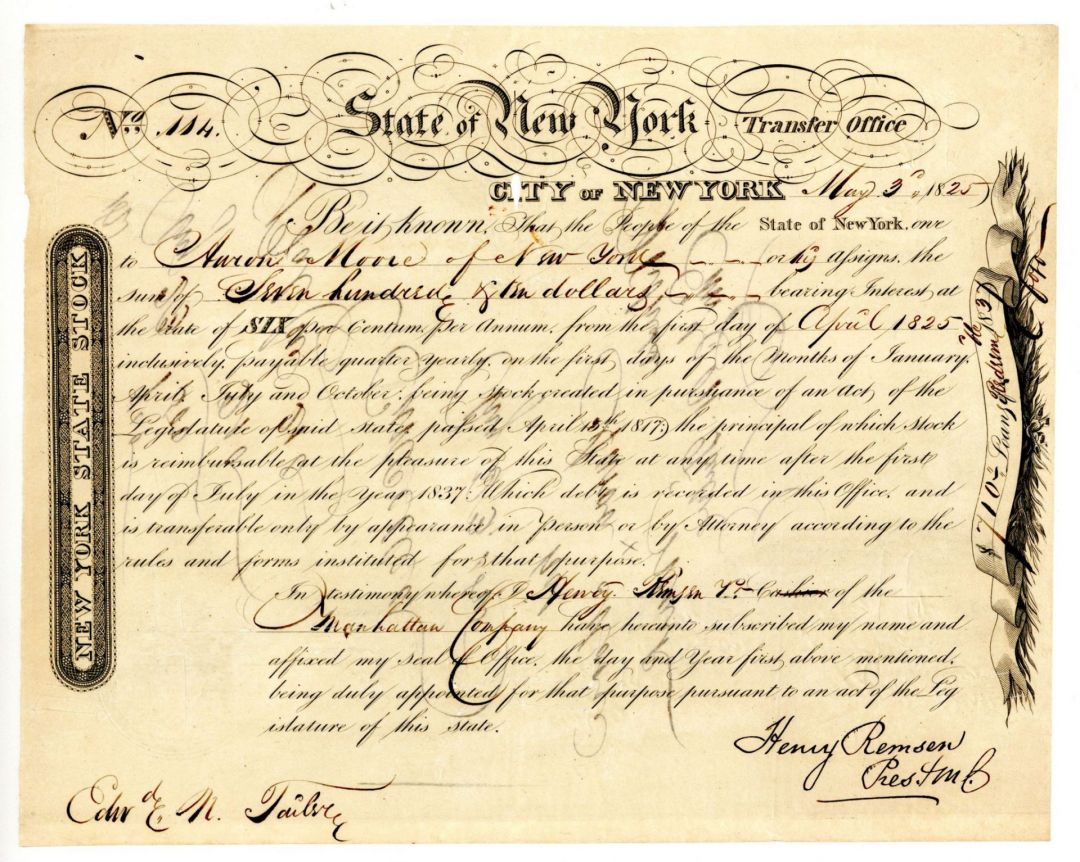 No. 114. State of New York Transfer Office
CITY OF NEW YORK May 3d, 1825
Be it known, That the People of the State of New York, owe
to Aaron Moore of New York or his Assigns, the
sum of Seven hundred & ten dollars, bearing Interest at
the Rate of SIX per Centum, per Annum, from the first day of April 1825
inclusively, payable quarter yearly, on the first days of the Months of January,
April, July and October: being stock created in pursuance of an Act, of the
Legislature of said state, passed April 15th 1817; the principal of which stock
is reimbursable at the pleasure of this State at any time after the first
day of July in the Year 1837: Which debt is recorded in this Office, and
is transferable only by appearance in person or by Attorney according to the
rules and forms instituted for that purpose.
In testimony whereof, I Henry Remsen Cashier of the
Manhattan Company have hereunto subscribed my name and
affixed my Seal of Office, the day and Year first above mentioned,
being duly appointed for that purpose pursuant to an act of the Leg
islature of this state.
Henry Remsen
Edwd. N.
NEW YORK STATE STOCK
$710 1837